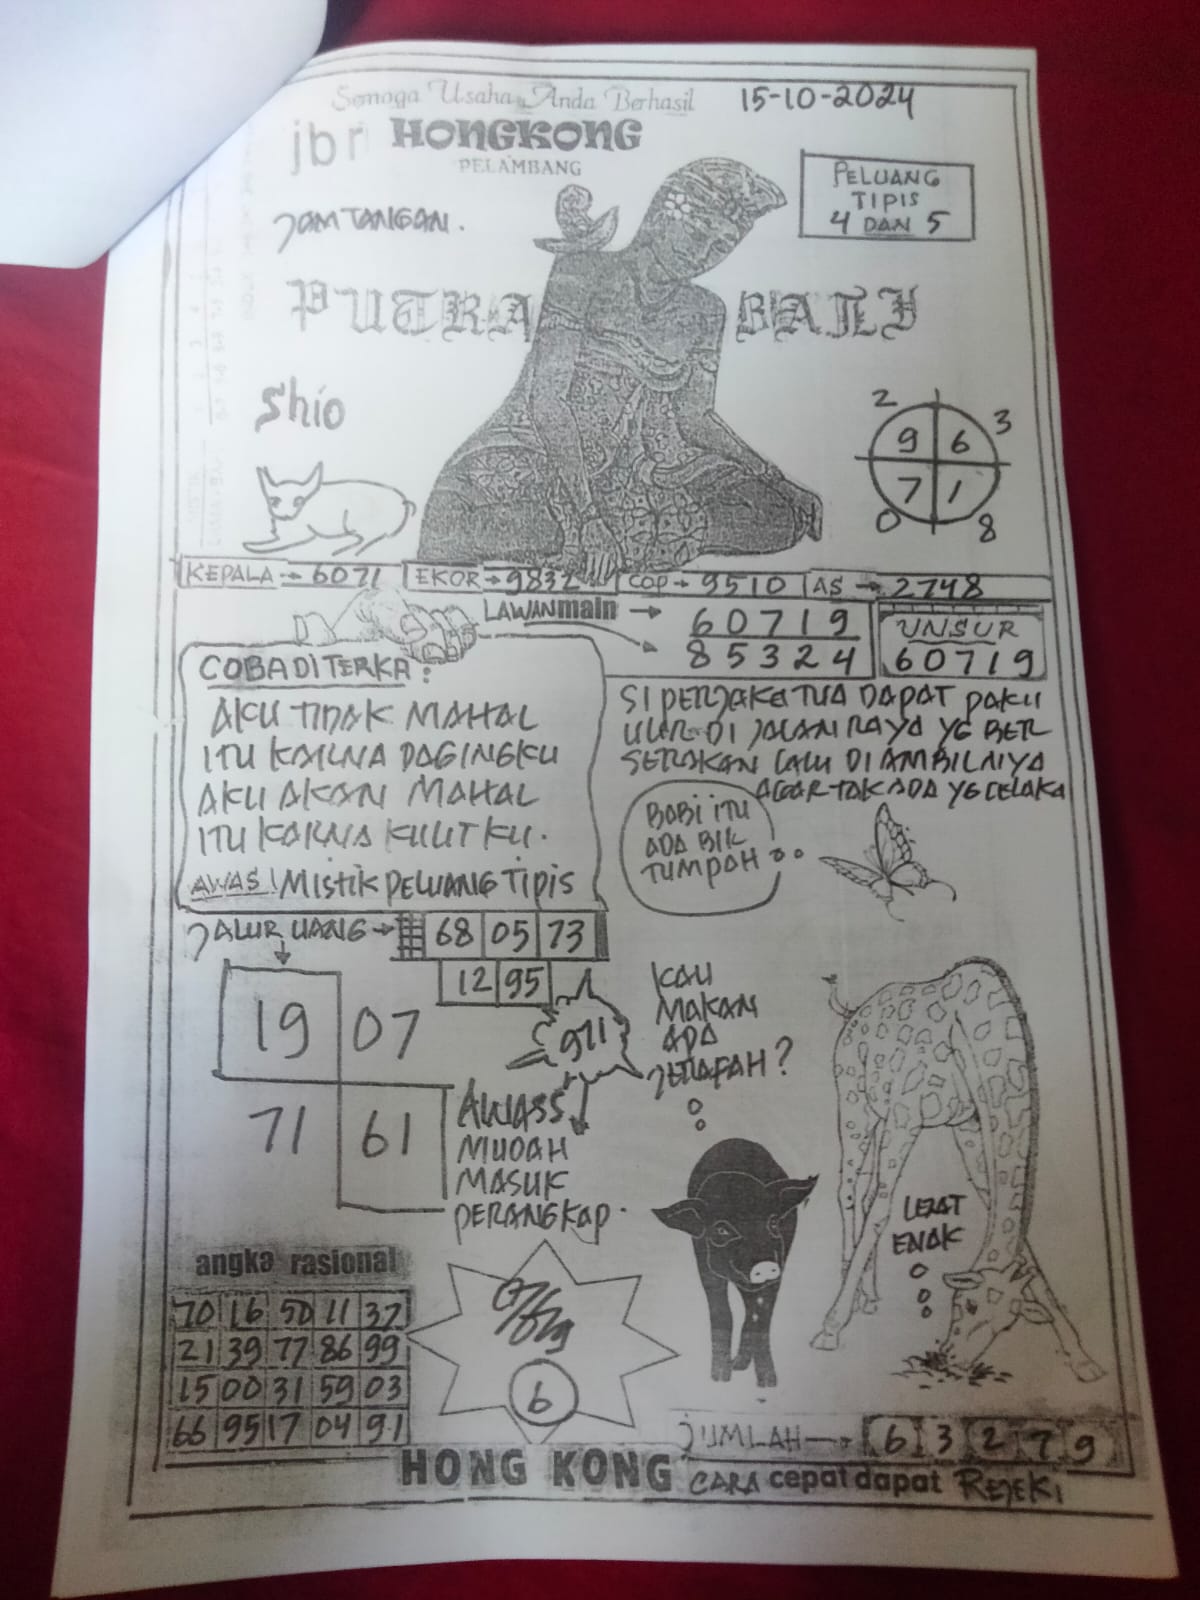 Semoga Usaha Anda Berhasil
15-10-2024
jbr HONGKONG
PELAMBANG
JAM TANGAN.
PELUANG
TIPIS
4 DAN 5
PUTRA BALI
Shio
2
3
9 6
7 1
0
8
KEPALA → 6071 EKOR → 9832 COP → 9510 AS → 2748
LAWAN main → 60719
85324
UNSUR
60719
COBA DITERKA :
AKU TIDAK MAHAL
ITU KARNA DAGINGKU
AKU AKAN MAHAL
ITU KARNA KULITKU.
AWAS! MISTIK PELUANG TIPIS
SI PERJAKA TUA DAPAT PAKU
ULIR DI JALAN RAYA YG BER
SERAKAN LALU DI AMBILNYA
AGAR TAK ADA YG CELAKA
BABI ITU
ADA BIK
TUMPAH
JALUR UANG → 68 05 73
12 95
19 07
71 61
971
AWASS
MUDAH
MASUK
PERANGKAP.
KAU
MAKAN
APA
JERAFAH?
LEZAT
ENAK
angka rasional
70 16 50 11 37
21 39 77 86 99
15 00 31 59 03
66 95 17 04 91
6
JUMLAH → 6 3 2 7 9
HONG KONG CARA cepat dapat REJEKI